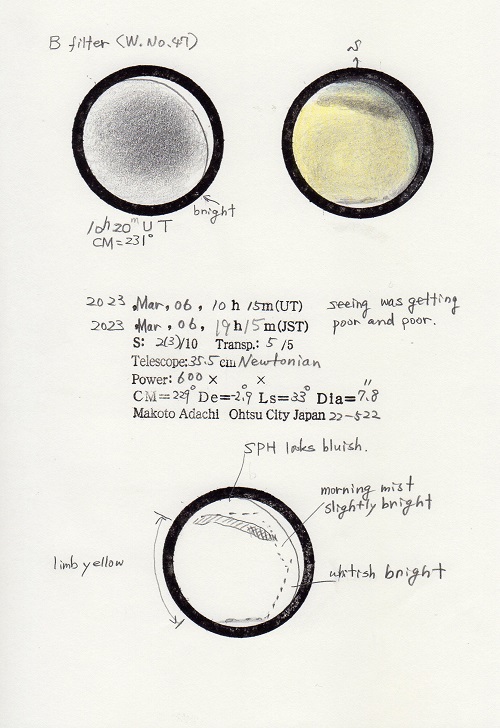 B filter (W. No. 47)
S
bright
10h20ᵐ UT
CM=231°
2023 Mar, 06, 10 h 15m(UT)
2023 Mar, 06, 19h15m(JST)
seeing was getting
poor and poor.
S: 2(3)/10 Transp.: 5/5
Telescope: 35.5 cm Newtonian
Power: 600 × ×
CM=229° De=-2.9° Ls=33° Dia=7.8"
Makoto Adachi Ohtsu City Japan 22-522
SPH looks bluish.
morning mist
slightly bright
limb yellow
whitish bright